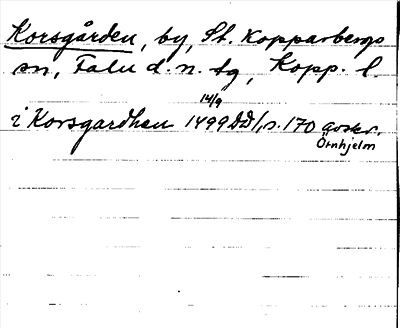 Korsgården, by, St. Kopparbergs
sn, Falu d. n. tg, Kopp. l.
14/9
i Korsgardhen 1499 DD 1, s. 170 avskr.
Örnhjelm